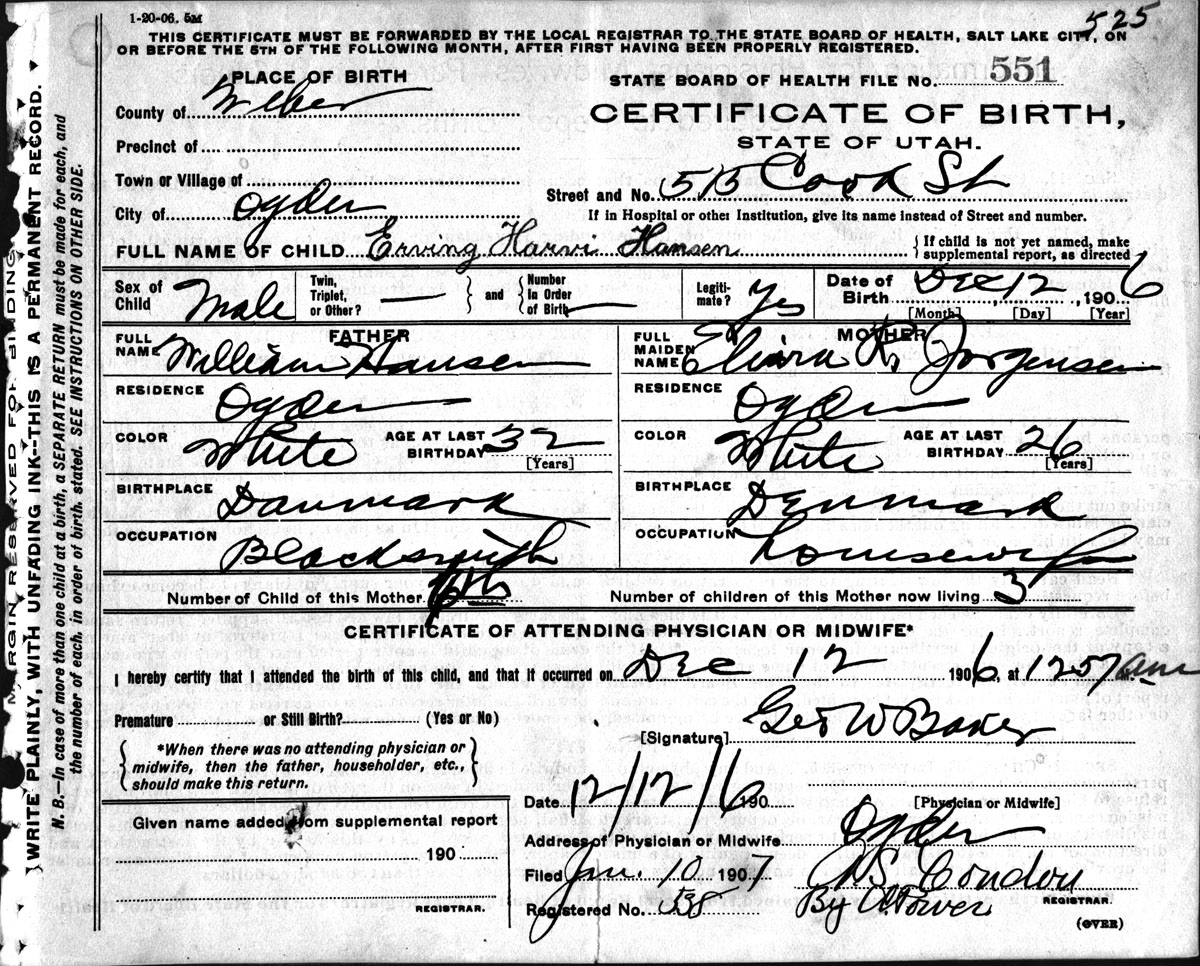 525
1-20-06. 5M
THIS CERTIFICATE MUST BE FORWARDED BY THE LOCAL REGISTRAR TO THE STATE BOARD OF HEALTH, SALT LAKE CITY, ON
OR BEFORE THE 5TH OF THE FOLLOWING MONTH, AFTER FIRST HAVING BEEN PROPERLY REGISTERED.
PLACE OF BIRTH
STATE BOARD OF HEALTH FILE NO. 551
County of Weber
CERTIFICATE OF BIRTH,
Precinct of
STATE OF UTAH.
Town or Village of
Street and No. 515 Cook St
City of Ogden
If in Hospital or other Institution, give its name instead of Street and number.
FULL NAME OF CHILD Erving Harvi Hansen
{If child is not yet named, make
supplemental report, as directed
Sex of Child Male
Twin, Triplet, or Other? —
and
Number In Order of Birth —
Legiti- mate? Yes
Date of Birth Dec 12, 1906
[Month] [Day] [Year]
FATHER
MOTHER
FULL NAME William Hansen
FULL MAIDEN NAME K. Jorgensen
RESIDENCE Ogden
RESIDENCE Ogden
COLOR White
AGE AT LAST BIRTHDAY 32 [Years]
COLOR White
AGE AT LAST BIRTHDAY 26 [Years]
BIRTHPLACE Danmark
BIRTHPLACE Denmark
OCCUPATION Blacksmith
OCCUPATION housewife
Number of Child of this Mother
Number of children of this Mother now living 3
CERTIFICATE OF ATTENDING PHYSICIAN OR MIDWIFE*
I hereby certify that I attended the birth of this child, and that it occurred on Dec 12 1906, at 1257 am
Premature or Still Birth? (Yes or No)
[Signature] Geo W Baker
*When there was no attending physician or
midwife, then the father, householder, etc.,
should make this return.
Date 12/12/6 190
[Physician or Midwife]
Given name added from supplemental report
Address of Physician or Midwife Ogden
190
Filed Jan. 10 1907
Condon
REGISTRAR.
REGISTRAR.
Registered No.
By Power
(OVER)
MARGIN RESERVED FOR BINDING
WRITE PLAINLY, WITH UNFADING INK--THIS IS A PERMANENT RECORD.
N. B.—In case of more than one child at a birth, a SEPARATE RETURN must be made for each, and
the number of each, in order of birth, stated. SEE INSTRUCTIONS ON OTHER SIDE.